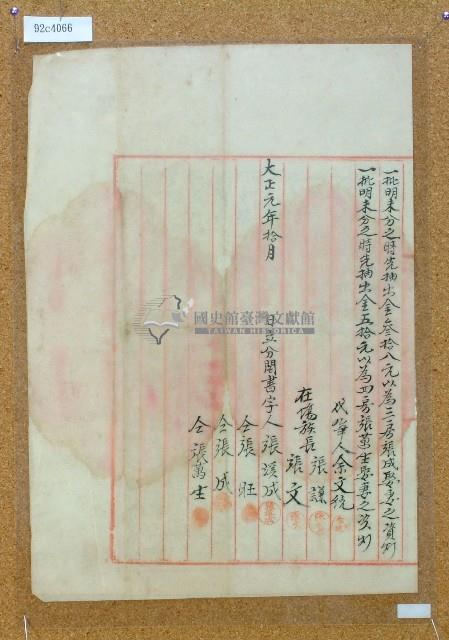 92c4066
一批明未分之時先抽出金叁拾八元以為三房張成娶妻之資炤
一批明未分之時先抽出金五拾元以為四房張萬生娶妻之資炤
代筆人余文統
在場族長張謙
張文
大正元年拾月 日立分鬮書字人張溪成
仝張旺
仝張成
仝張萬生
國史館臺灣文獻館
TAIWAN HISTORICA